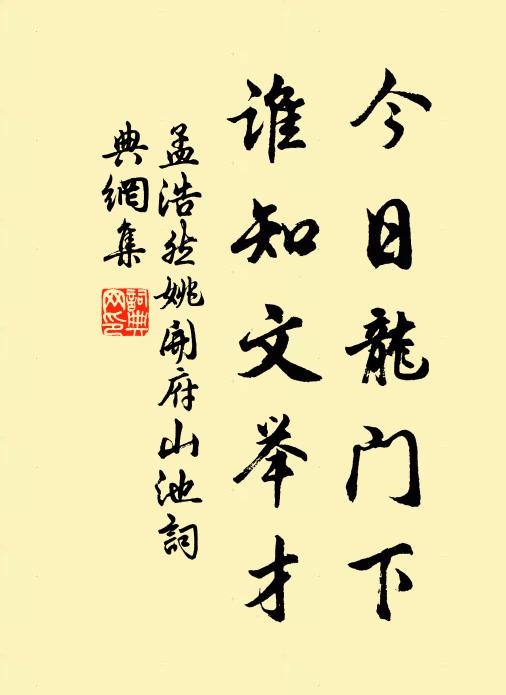 今日龍门下
谁知文举才
孟浩然姚開府山池詞
典網集
詞典网印